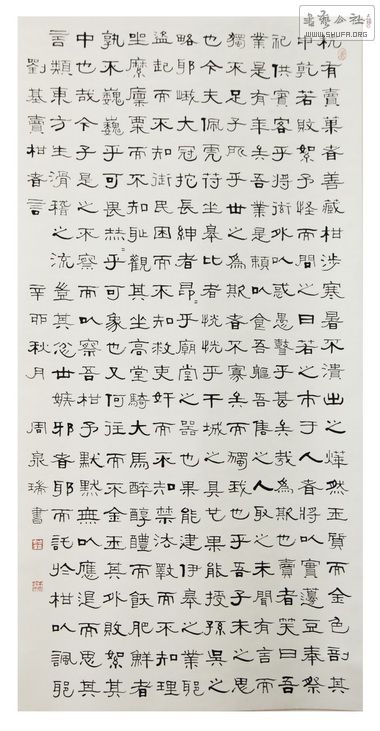 杭有賣菓者善藏柑涉寒暑不潰出之燁然玉質而金色剖其
中乾若敗絮予怪而問之曰若之市于人者將以實籩豆奉祭
祀供賓客乎將衒外以惑愚瞽乎甚矣哉為欺也賣者笑曰吾
業是有年矣吾業是賴以食吾軀吾售之人取之未聞有言而
獨不足子所乎世之為欺者不寡矣而獨我也乎吾子未之思
也今夫佩虎符坐皋比者恍恍乎干城之具也果能授孫吳之
略耶峨大冠拕長紳者昂〻乎廟堂之器也果能建伊皋之業耶
盜起而不知御民困而不知救吏奸而不知禁法斁而不知理
坐糜廩粟而不知恥觀其坐高堂騎大馬醉醇醴而飫肥鮮者
孰不巍巍乎可畏赫〻乎可象也又何往而不金玉其外敗絮其
中也哉今子是之不察而以察吾柑予默默無以應退而思其
言類東方生滑稽之流豈其忿世嫉邪者耶而託於柑以諷耶
劉基賣柑者言 辛卯秋月 周泉瑞書
书艺公社
www.SHUFA.ORG